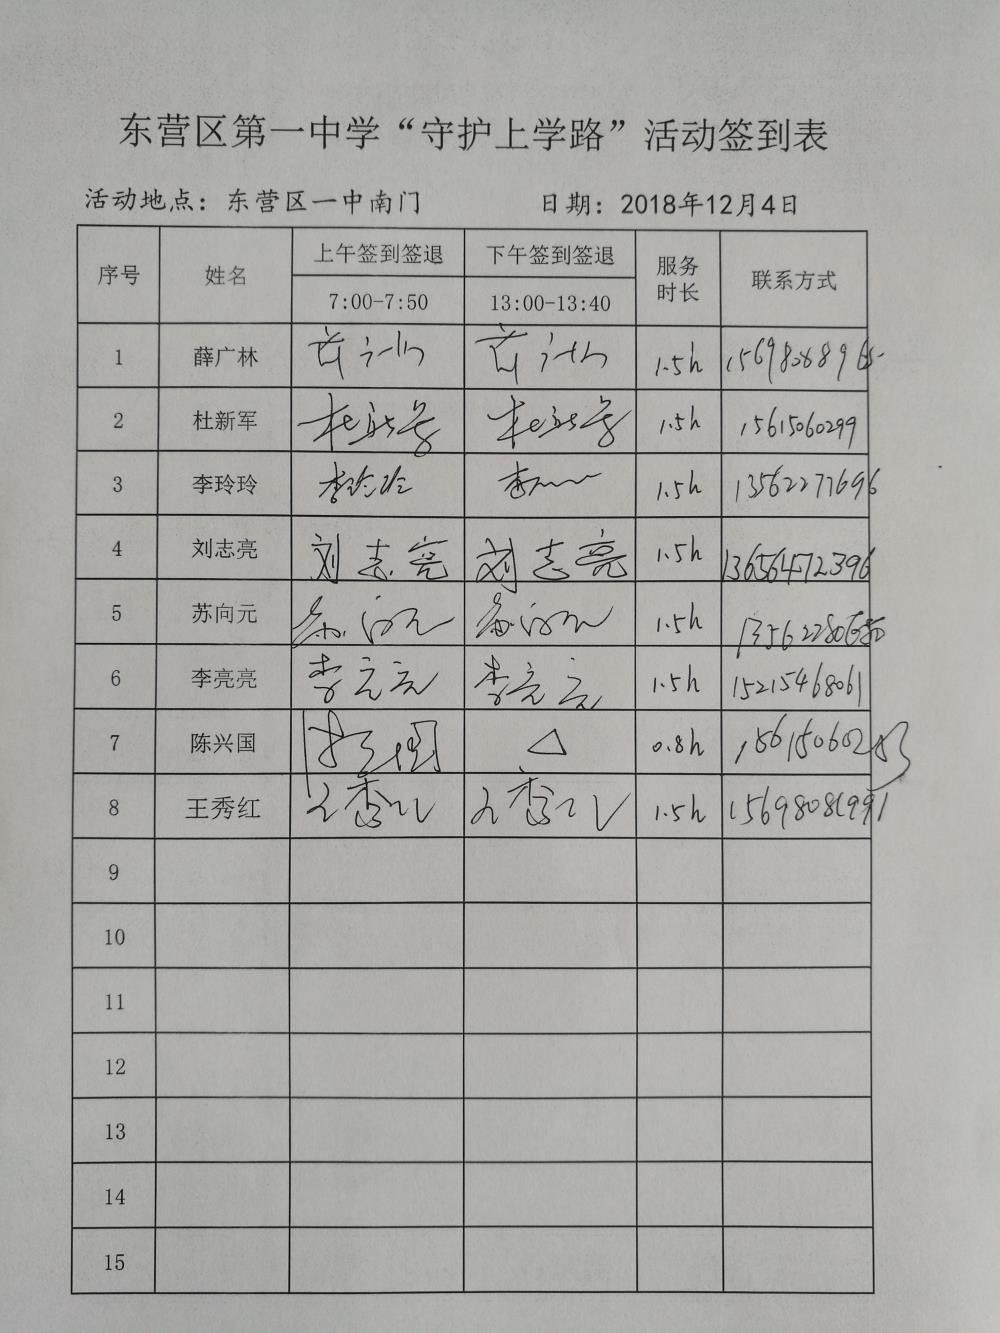 东营区第一中学“守护上学路”活动签到表
活动地点：东营区一中南门 日期：2018年12月4日
序号 姓名 上午签到签退 下午签到签退 服务时长 联系方式
7:00-7:50 13:00-13:40
1 薛广林 1.5h
2 杜新军 杜新军 杜新军 1.5h 15615060299
3 李玲玲 李玲玲 李 1.5h 13562277696
4 刘志亮 刘志亮 刘志亮 1.5h 13656472396
5 苏向元 苏向元 苏向元 1.5h
6 李亮亮 李亮亮 李亮亮 1.5h 15215468061
7 陈兴国 陈兴国 △ 0.8h
8 王秀红 王秀红 王秀红 1.5h 15698081991
9
10
11
12
13
14
15